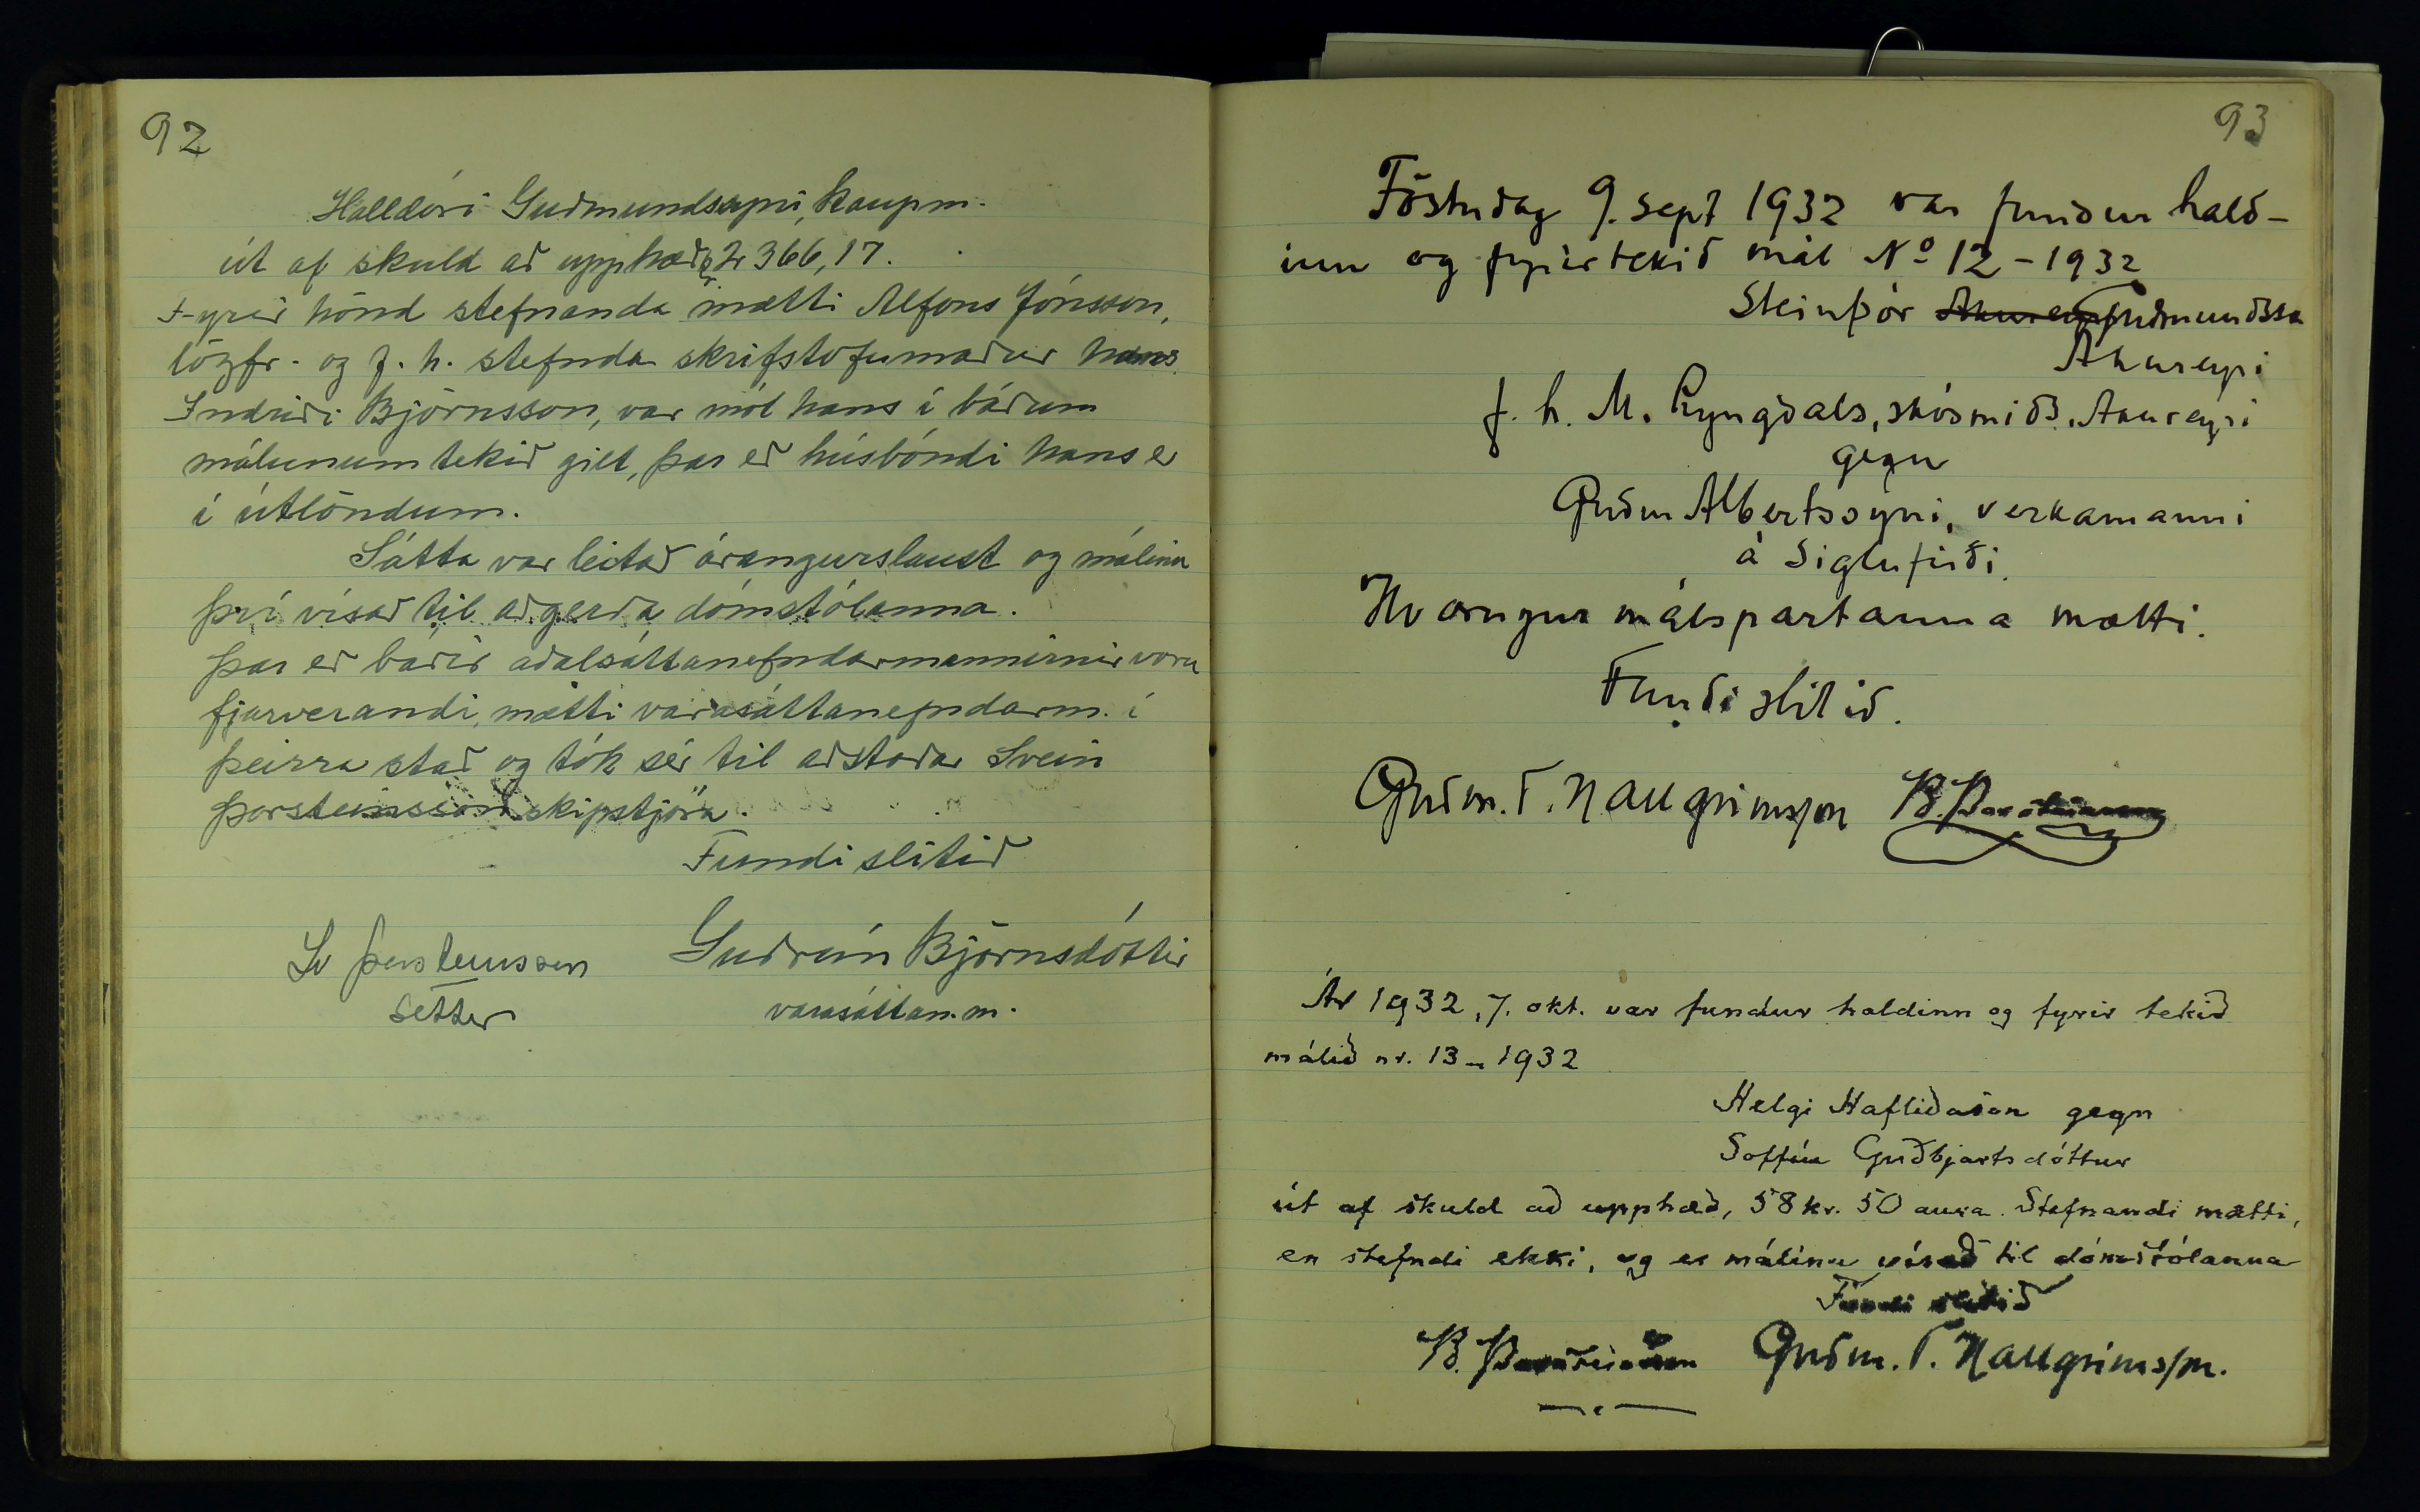 92
Halldóri Guðmundssyni, kaupm.
út af skuld að upphæð kr 366,17.
Fyrir hönd stefnanda mætti Alfons Jónsson,
lögfr. og f. h. stefnda skrifstofumaður hans
Indriði Björnsson, var mót hans í báðum
málunum tekið gilt, þar eð húsbóndi hans er
í útlöndum.
Sátta var leitað árangurslaust og málinu
því vísað til aðgerða dómstólanna.
Þar eð báðir aðalsáttanefndarmennirnir voru
fjarverandi, mætti varasáttanefndarm. í
þeirra stað og tók sér til aðstoðar Svein
Þorsteinsson skipstjóra.
Fundi slitið
Sv Þorsteinsson Guðrún Björnsdóttir
settur varasáttan.m.
93
Föstudag 9. sept 1932 var fundur hald-
inn og fyrirtekið mál No 12 - 1932
Steinþór Guðmundsson
Akureyri
f. h. M. Lyngdals, skósmiðs, Akureyri
gegn
Guðm Albertssyni, verkamanni
á Siglufirði.
Hvorugur málspartanna mætti.
Fundi slitið.
Guðm. T. Hallgrímsson B. Þorsteinsson
Ár 1932, 7. okt. var fundur haldinn og fyrir tekið
málið nr. 13 - 1932
Helgi Hafliðason gegn
Soffíu Guðbjartsdóttur
út af skuld að upphæð, 58 kr. 50 aura. Stefnandi mætti,
en stefndi ekki, og er málinu vísað til dómstólanna
Fundi slitið
B. Þorsteinsson Guðm. T. Hallgrímsson.